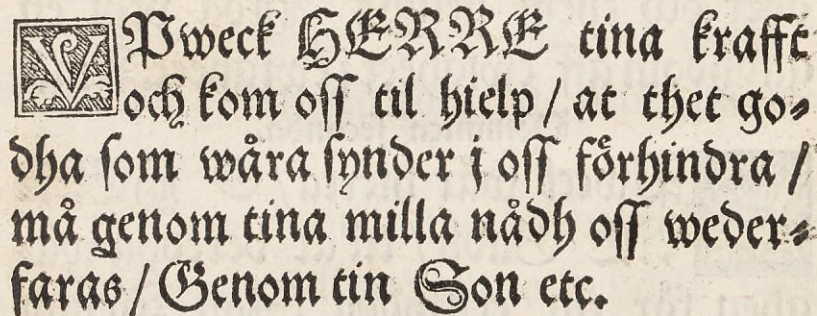 VPweck HERRE tina krafft
och kom oſſ til hielp / at thet go⸗
dha ſom wåra ſynder j oſſ förhindra /
må genom tina milla nådh oſſ weder⸗
faras / Genom tin Son etc.